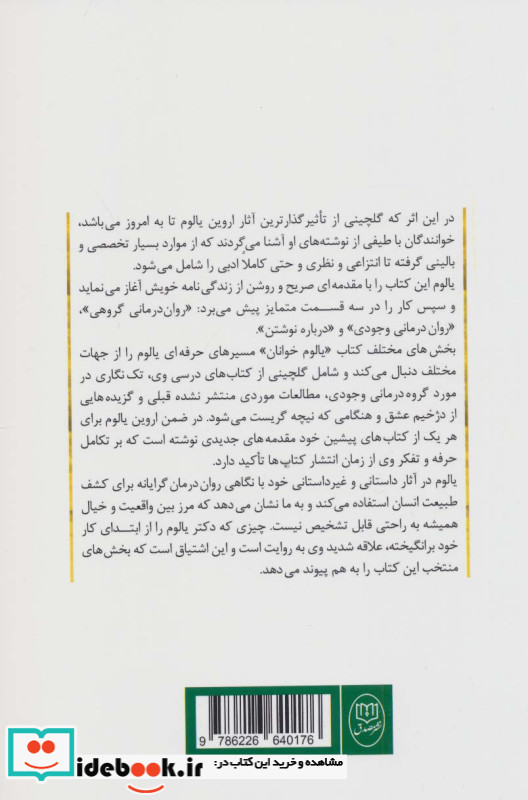 در این اثر که گلچینی از تأثیرگذارترین آثار اروین یالوم تا به امروز می‌باشد،
خوانندگان با طیفی از نوشته‌های او آشنا می‌گردند که از موارد بسیار تخصصی و
بالینی گرفته تا انتزاعی و نظری و حتی کاملاً ادبی را شامل می‌شود.
یالوم این کتاب را با مقدمه‌ای صریح و روشن از زندگی‌نامه خویش آغاز می‌نماید
و سپس کار را در سه قسمت متمایز پیش می‌برد: «روان‌درمانی گروهی»،
«روان‌درمانی وجودی» و «درباره نوشتن».
بخش‌های مختلف کتاب «یالوم خوانان» مسیرهای حرفه‌ای یالوم را از جهات
مختلف دنبال می‌کند و شامل گلچینی از کتاب‌های درسی وی، تک‌نگاری در
مورد گروه‌درمانی وجودی، مطالعات موردی منتشر نشده قبلی و گزیده‌هایی
از دژخیم عشق و هنگامی که نیچه گریست می‌شود. در ضمن اروین یالوم برای
هر یک از کتاب‌های پیشین خود مقدمه‌های جدیدی نوشته است که بر تکامل
حرفه و تفکر وی از زمان انتشار کتاب‌ها تأکید دارد.
یالوم در آثار داستانی و غیرداستانی خود با نگاهی روان‌درمان‌گرایانه برای کشف
طبیعت انسان استفاده می‌کند و به ما نشان می‌دهد که مرز بین واقعیت و خیال
همیشه به راحتی قابل تشخیص نیست. چیزی که دکتر یالوم را از ابتدای کار
خود برانگیخته، علاقه شدید وی به روایت است و این اشتیاق است که بخش‌های
منتخب این کتاب را به هم پیوند می‌دهد.
9 786226 640176
نشر صدق
مشاهده و خرید این کتاب در:
idebook.ir